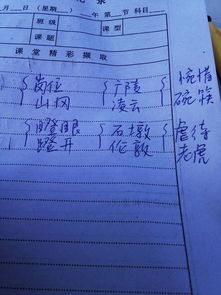 录
月 日（星期 ） 年 第 节 科目
班级 课型
课题
课堂精彩撷取
岗位 广陵 惋惜
山冈 凌云 碗筷
瞪眼 石墩 虐待
蹬开 伦敦 老虎